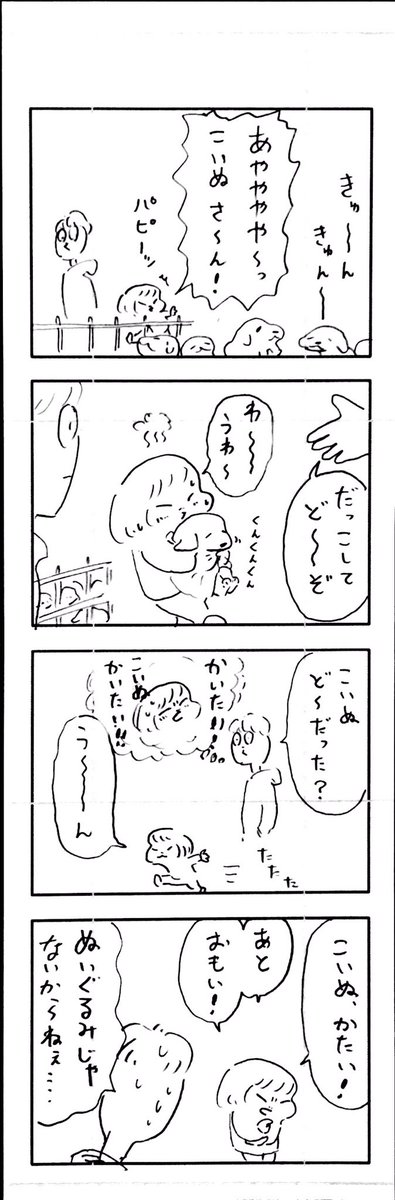 きゅ〜〜ん
きゅん〜
あややややや〜っ
こいぬさ〜ん!
パピーッ
だっこして
ど〜〜ぞ
わ〜〜
うわ〜
くんくんくん
こいぬ
ど〜だった?
かいたい!!
こいぬ
かいたい!!!
う〜〜ん
たたた
こいぬ、かたい!
あと
おもい!
ぬいぐるみじゃ
ないからねぇ……